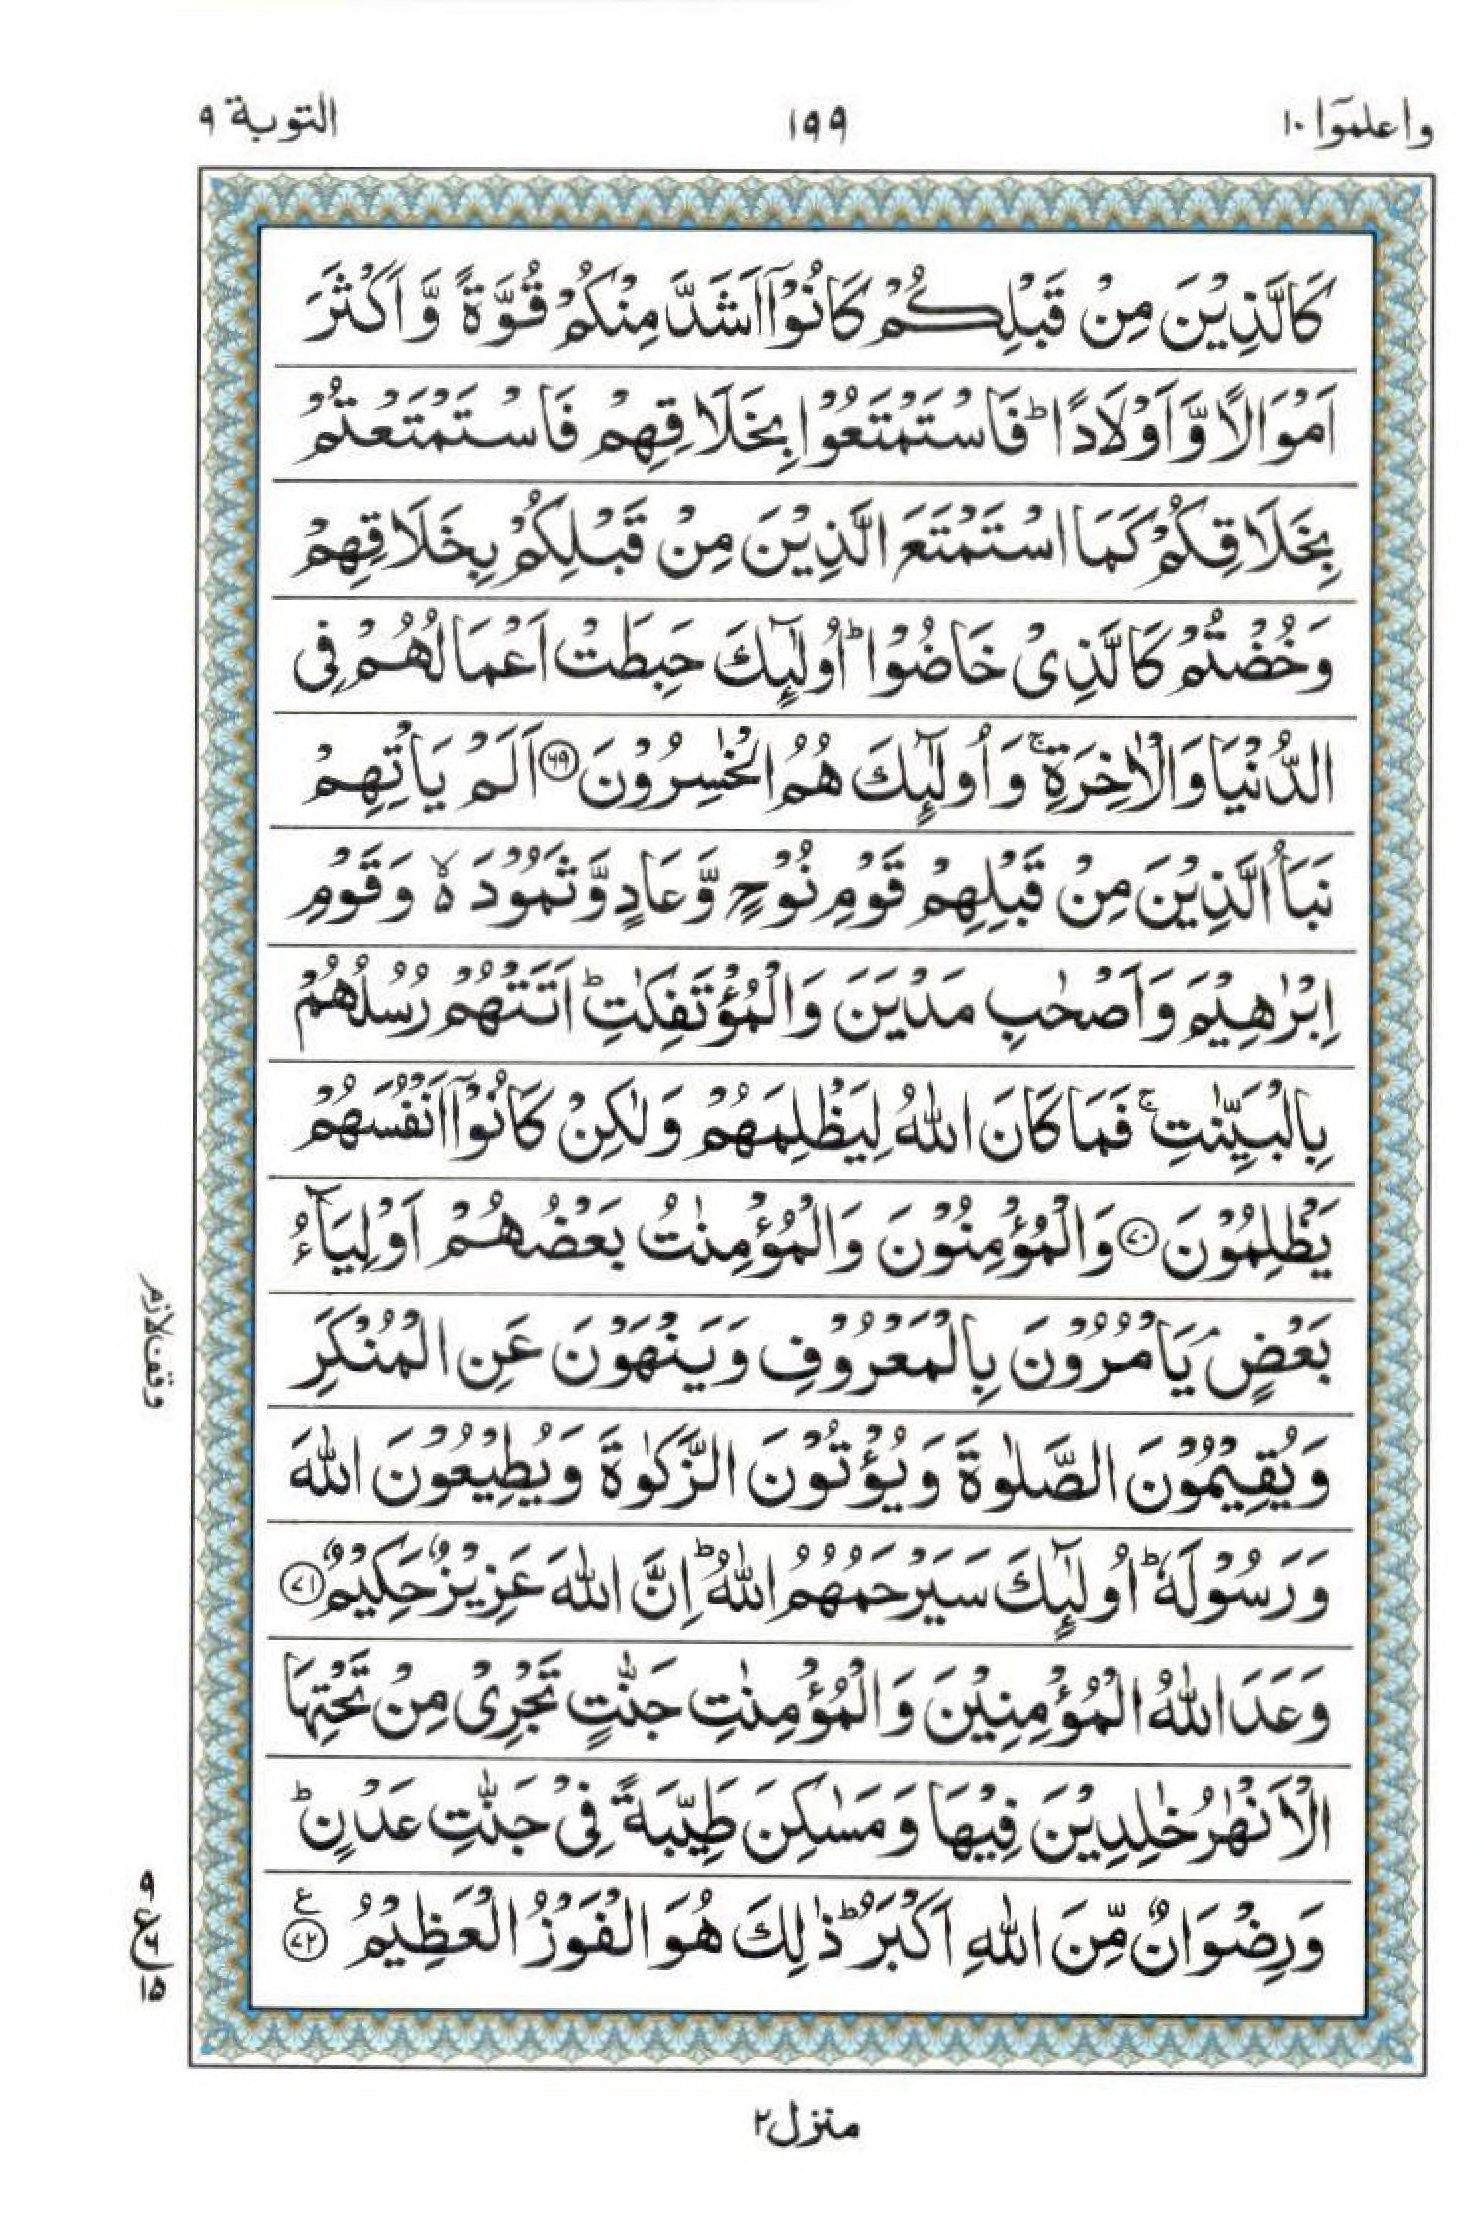 واعلموٓا ١٠
١٩٩
التوبة ٩
كَالَّذِيْنَ مِنْ قَبْلِكُمْ كَانُوْٓا اَشَدَّ مِنْكُمْ قُوَّةً وَّ اَكْثَرَ
اَمْوَالًا وَّ اَوْلَادًا ؕ فَاسْتَمْتَعُوْا بِخَلَاقِهِمْ فَاسْتَمْتَعْتُمْ
بِخَلَاقِكُمْ كَمَا اسْتَمْتَعَ الَّذِيْنَ مِنْ قَبْلِكُمْ بِخَلَاقِهِمْ
وَ خُضْتُمْ كَالَّذِيْ خَاضُوْا ؕ اُولٰٓئِكَ حَبِطَتْ اَعْمَالُهُمْ فِي
الدُّنْيَا وَالْاٰخِرَةِ ۚ وَ اُولٰٓئِكَ هُمُ الْخٰسِرُوْنَ ۶۹ اَلَمْ يَاْتِهِمْ
نَبَاُ الَّذِيْنَ مِنْ قَبْلِهِمْ قَوْمِ نُوْحٍ وَّ عَادٍ وَّ ثَمُوْدَ ۙ وَ قَوْمِ
اِبْرٰهِيْمَ وَ اَصْحٰبِ مَدْيَنَ وَالْمُؤْتَفِكٰتِ ؕ اَتَتْهُمْ رُسُلُهُمْ
بِالْبَيِّنٰتِ ۚ فَمَا كَانَ اللّٰهُ لِيَظْلِمَهُمْ وَلٰكِنْ كَانُوْٓا اَنْفُسَهُمْ
يَظْلِمُوْنَ ۷۰ وَالْمُؤْمِنُوْنَ وَالْمُؤْمِنٰتُ بَعْضُهُمْ اَوْلِيَآءُ
بَعْضٍ ۘ يَاْمُرُوْنَ بِالْمَعْرُوْفِ وَيَنْهَوْنَ عَنِ الْمُنْكَرِ
وقف لازم
وَيُقِيْمُوْنَ الصَّلٰوةَ وَيُؤْتُوْنَ الزَّكٰوةَ وَيُطِيْعُوْنَ اللّٰهَ
وَرَسُوْلَهٗ ؕ اُولٰٓئِكَ سَيَرْحَمُهُمُ اللّٰهُ ؕ اِنَّ اللّٰهَ عَزِيْزٌ حَكِيْمٌ ۷۱
وَعَدَ اللّٰهُ الْمُؤْمِنِيْنَ وَالْمُؤْمِنٰتِ جَنّٰتٍ تَجْرِيْ مِنْ تَحْتِهَا
الْاَنْهٰرُ خٰلِدِيْنَ فِيْهَا وَ مَسٰكِنَ طَيِّبَةً فِيْ جَنّٰتِ عَدْنٍ ؕ
وَ رِضْوَانٌ مِّنَ اللّٰهِ اَكْبَرُ ؕ ذٰلِكَ هُوَ الْفَوْزُ الْعَظِيْمُ ۷۲ ع
۹
ع ۶
۱۵
منزل ۲